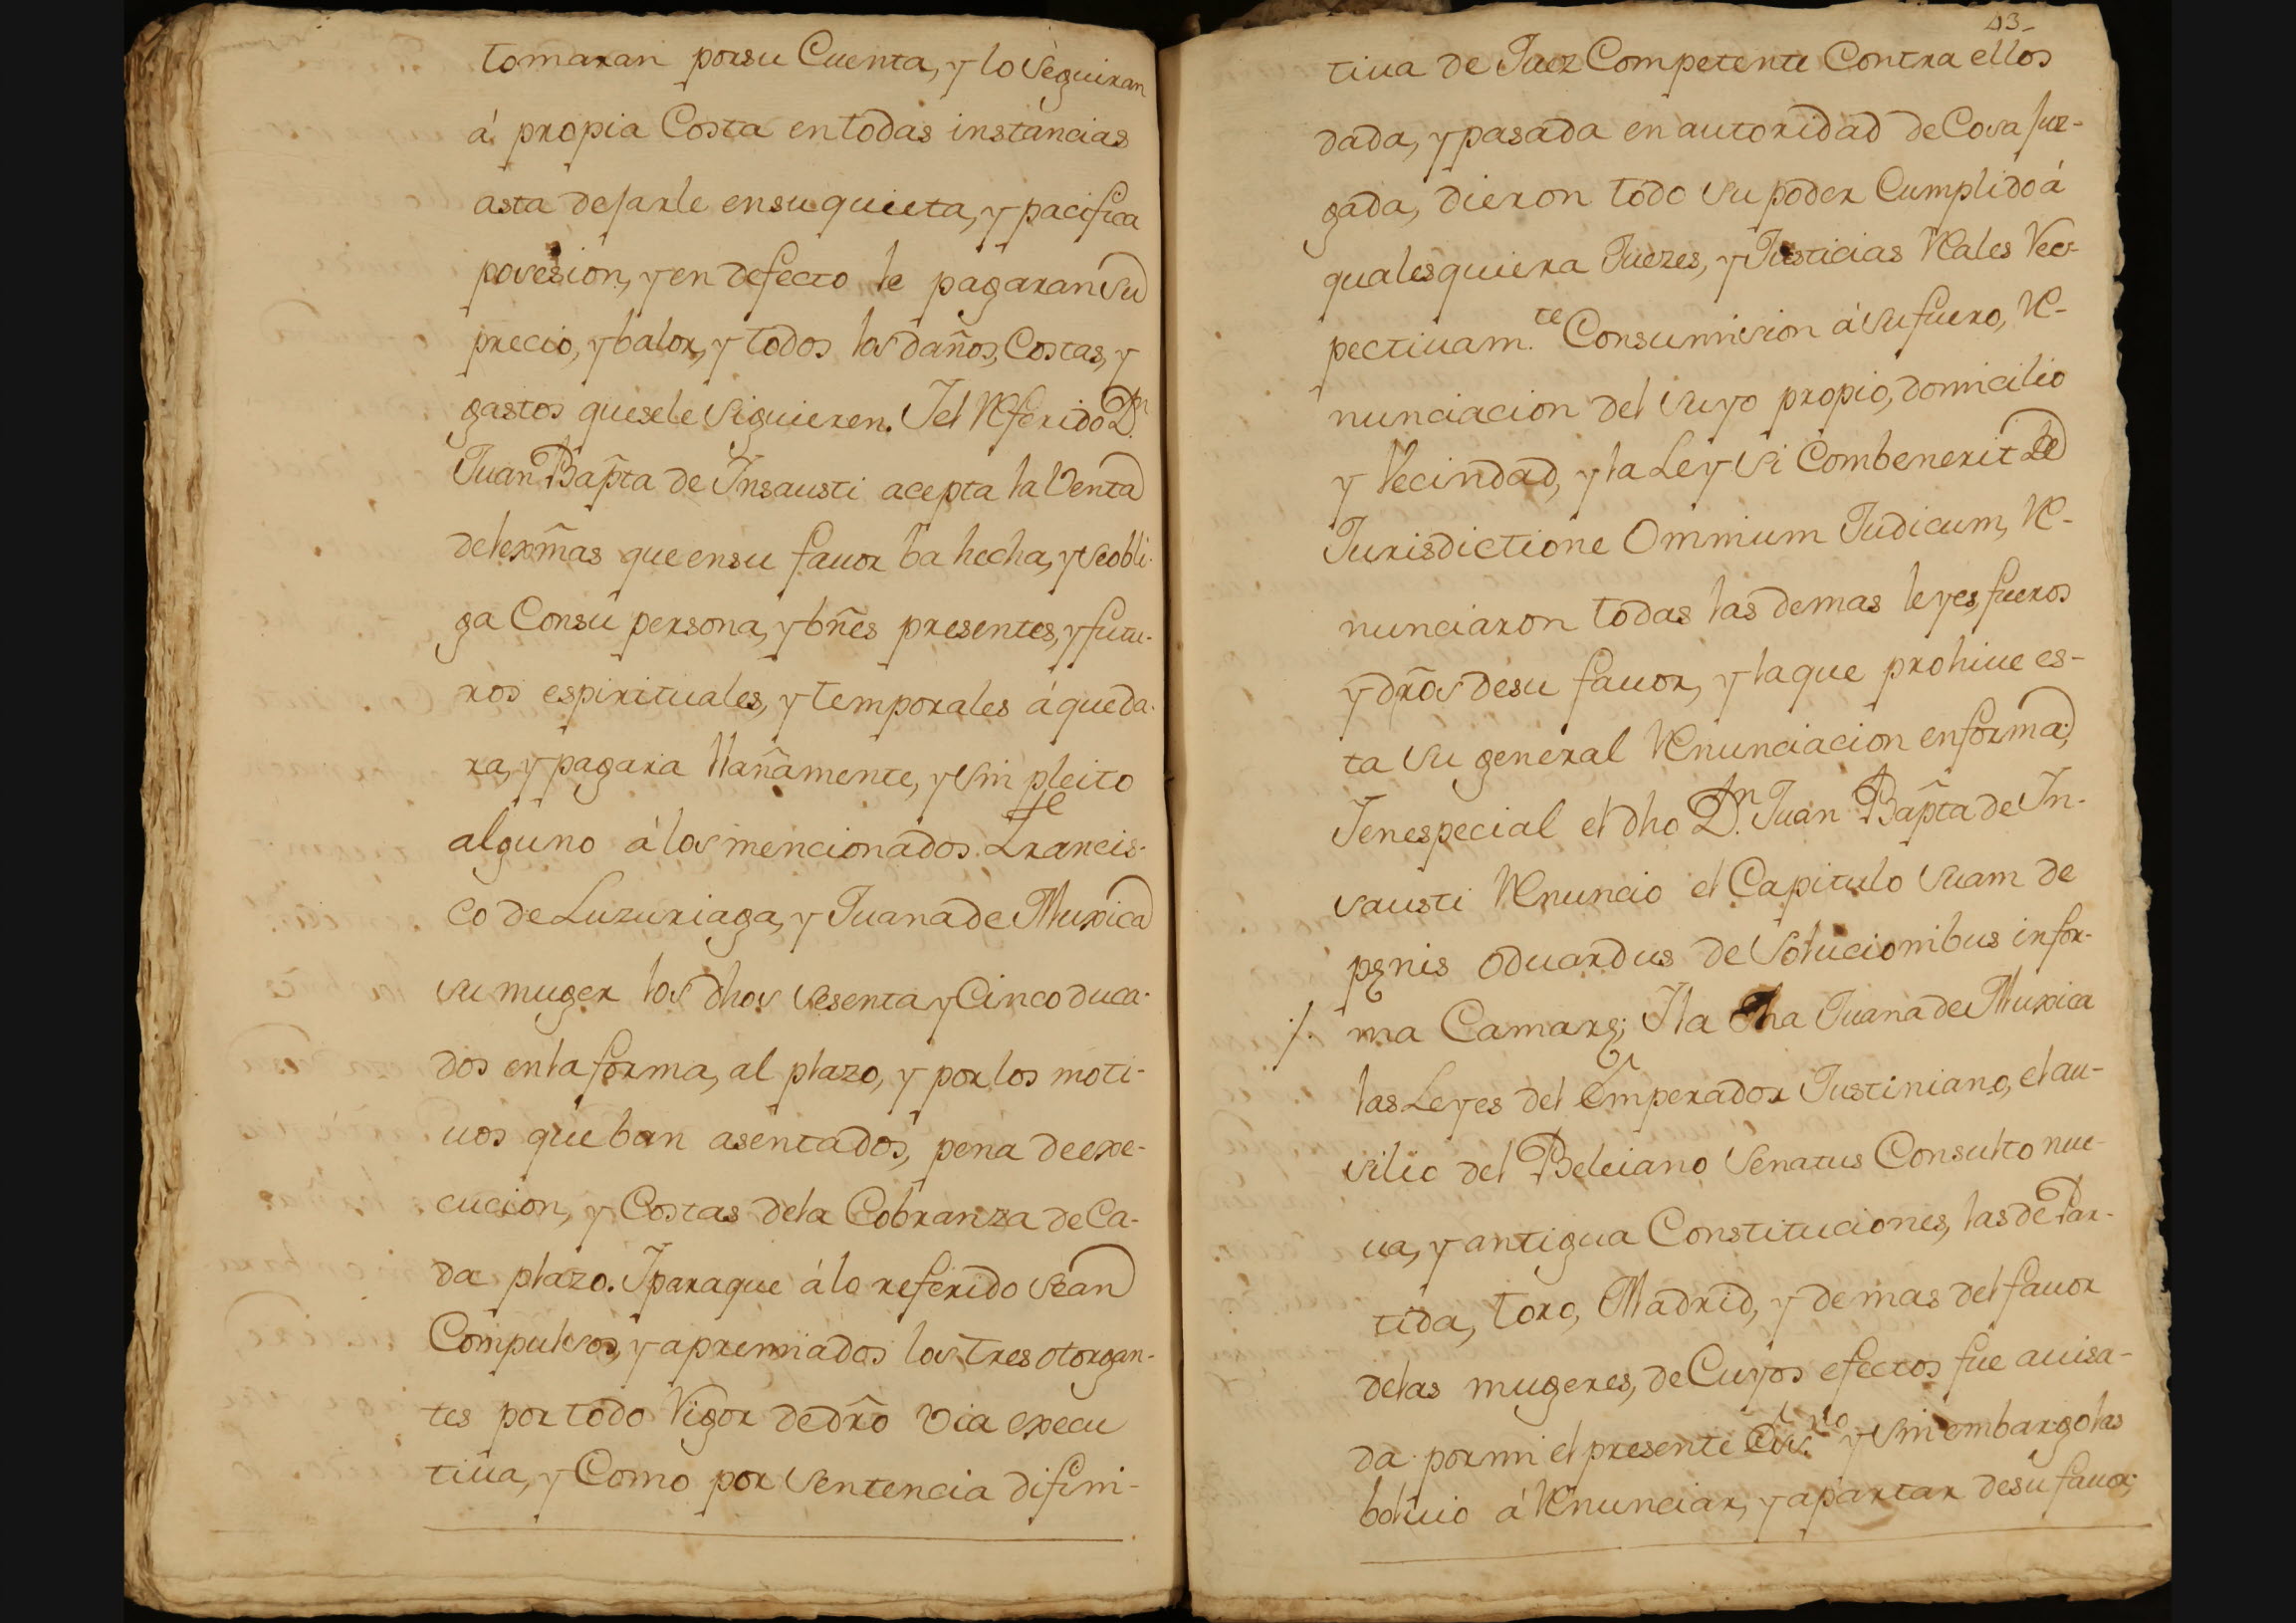 tomaran por su Cuenta, y lo seguiran
á propia Costa en todas instancias
asta dejarle en su quieta, y pacifica
posesion, y en defecto le pagaran su
precio, y balor, y todos los daños, Costas, y
gastos que sele siguieren. Jel Referido Dn.
Juan Bapta de Insausti acepta la Venta
delexmas que en su favor ba hecha, y se obli-
ga Con su persona, y bñes presentes, y futu-
ros espirituales, y temporales á que da-
ra, y pagara llanamente, y sin pleito
alguno á los mencionados Francis-
co de Luzuriaga, y Juana de Muxica
su muger los dhos sesenta y Cinco duca-
dos en la forma, al plazo, y por los moti-
uos que ban asentados, pena de exe-
cucion, y Costas dela Cobranza de Ca-
da plazo. Jpara que á lo referido sean
Compulsos, y apremiados los tres otorgan-
tes por todo Vigor de dro Via execu
tiua, y Como por sentencia difini-
43-
tiua de Juez Competente Contra ellos
dada, y pasada en autoridad de Cosa juz-
gada, dieron todo su poder Cumplido á
qualesquiera Juezes, y Justicias Reales Res-
pectiuam.te Consumision á su fuero, Re-
nunciacion del suyo propio, domicilio
y Vecindad, y la Ley si Combenerit de
Jurisdictione Omnium Judicum, Re-
nunciaron todas las demas leyes, fueros
y dros de su fauor, y la que prohiue es-
ta su general Renunciacion en forma;
Jen especial el dho Dn. Juan Bapta de In-
sausti Renuncio el Capitulo suam de
penis oduardus de Solucionibus infor-
./. ma Camare; Jla dha Juana de Muxica
las Leyes del Emperador Justiniano, el au-
silio del Beleiano senatus Consulto nue-
ua, y antigua Constituciones, las de Par-
tida, toro, Madrid, y demas del fauor
delas mugeres, de Cuyos efectos fue auisa-
da por mi el presente Es.no y sin embargo las
boluio á Renunciar, y apartar de su fauor;